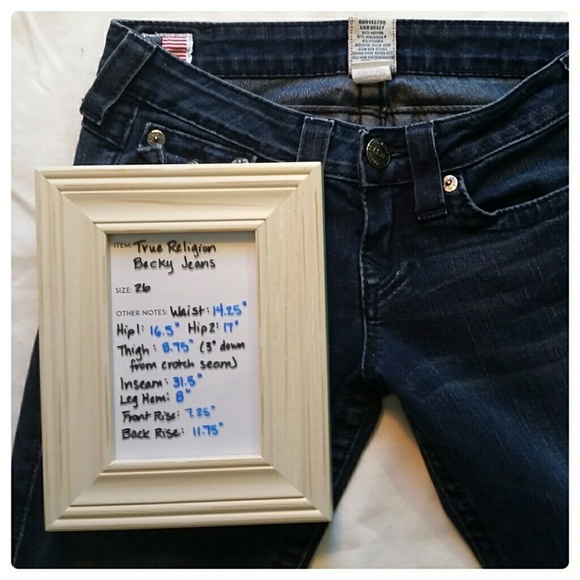 ITEM: True Religion
Becky Jeans
SIZE: 26
OTHER NOTES: Waist: 14.25"
Hip1: 16.5" Hip2: 17"
Thigh: 8.75" (3" down
from crotch seam)
Inseam: 31.5"
Leg Hem: 8"
Front Rise: 7.25"
Back Rise: 11.75"